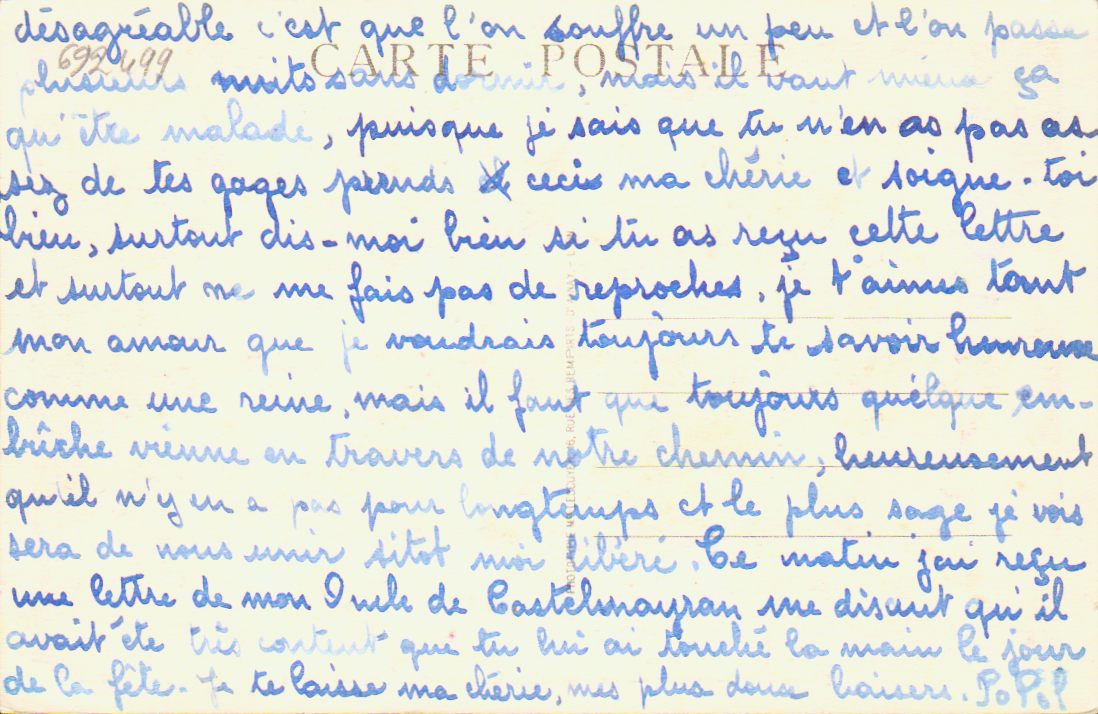 désagréable c'est que l'on souffre un peu et l'on passe
CARTE POSTALE
692499
plusieurs nuits sans dormir, mais il vaut mieux ça
qu'être malade, puisque je sais que tu n'en as pas as
sez de tes gages prends ceci ma chérie et soigne-toi
bien, surtout dis-moi bien si tu as reçu cette lettre
et surtout ne me fais pas de reproches, je t'aimes tant
mon amour que je voudrais toujours te savoir heureuse
comme une reine, mais il faut que toujours quélque em-
bûche vienne en travers de notre chemin, heureusement
qu'il n'y en a pas pour longtemps et le plus sage je vois
sera de nous unir sitot moi libéré. Ce matin j'ai reçu
une lettre de mon Oncle de Castelmayran me disant qu'il
avait éte très content que tu lui ai touché la main le jour
de la fête. Je te laisse ma chérie, mes plus doux baisers. PoPol